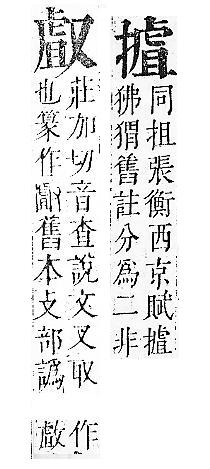 摣
同抯張衡西京賦摣
狒猬舊註分爲二非
𠭯
莊加切音查說文叉取
也篆作𠭯舊本攴部譌
作
㪥